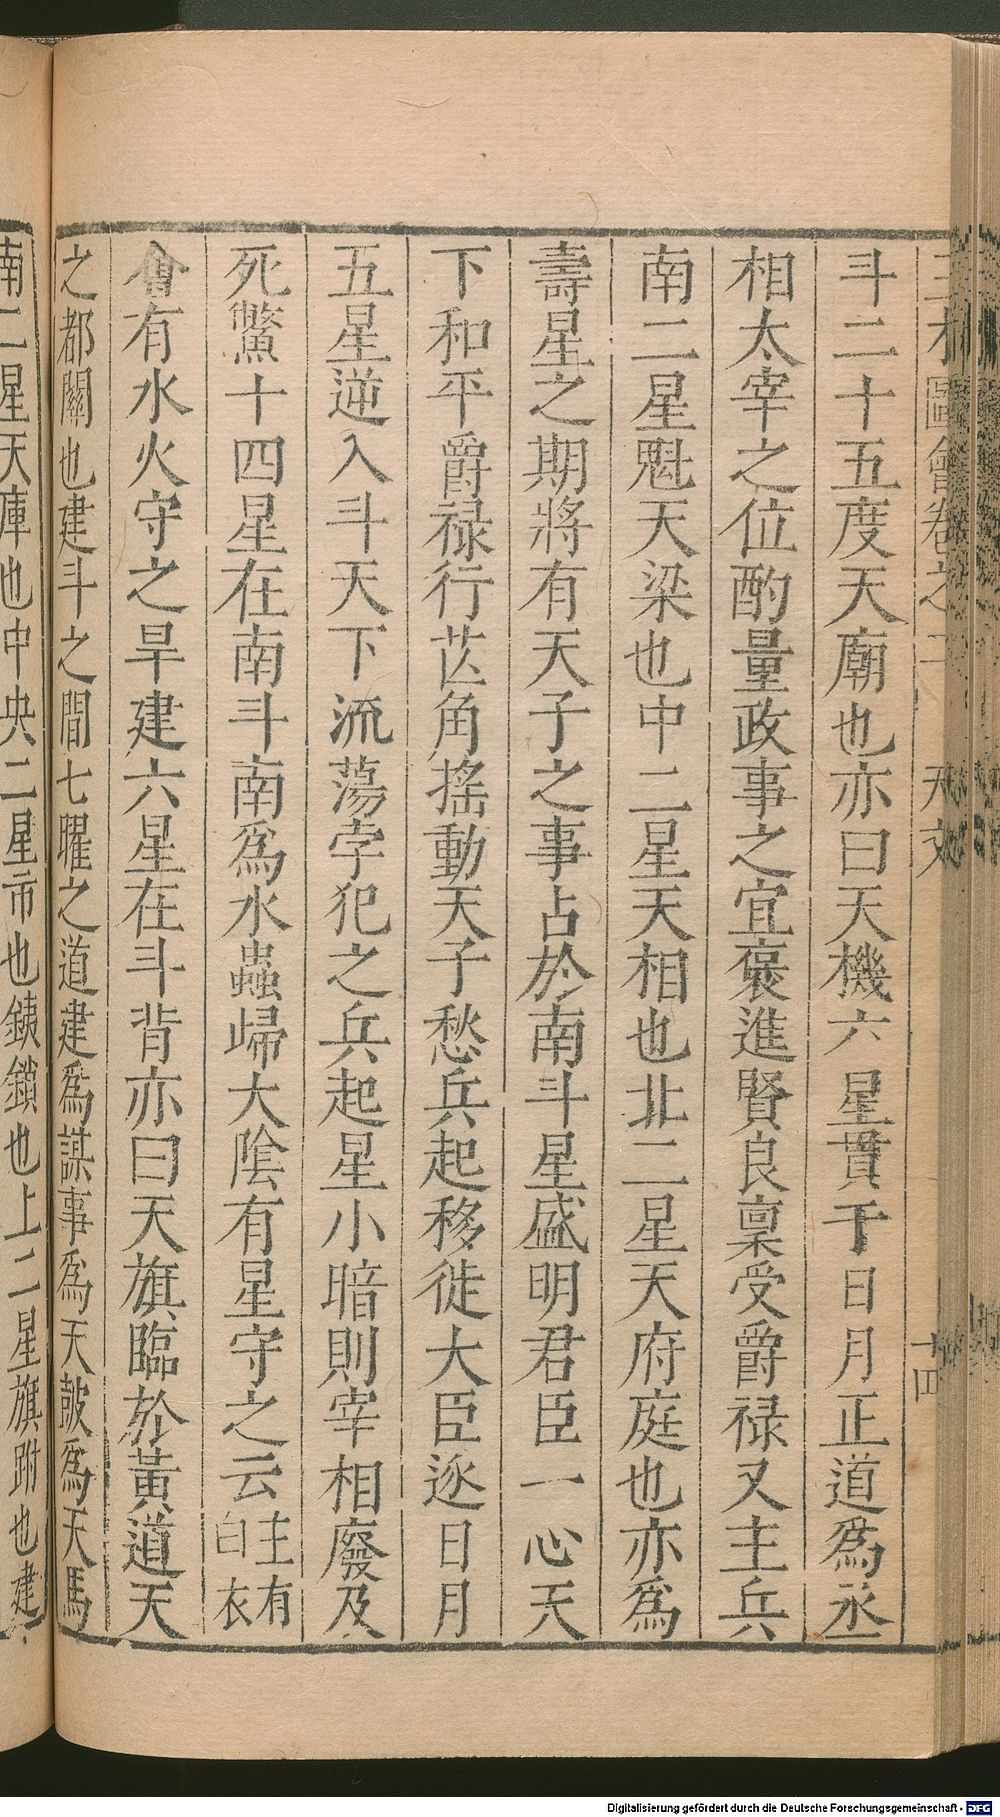 三才圖會卷之 天文 十四
斗二十五度天廟也亦曰天機六星貫于日月正道為丞
相太宰之位酌量政事之宜褒進賢良稟受爵祿又主兵
南二星魁天梁也中二星天相也北二星天府庭也亦為
壽星之期將有天子之事占於南斗星盛明君臣一心天
下和平爵祿行芒角搖動天子愁兵起移徙大臣逐日月
五星逆入斗天下流蕩孛犯之兵起星小暗則宰相廢及
死鱉十四星在南斗南為水蟲歸大陰有星守之云主有白衣
會有水火守之旱建六星在斗背亦曰天旗臨於黃道天
之都關也建斗之間七曜之道建為謀事為天鼓為天馬
南二星天庫也中央二星市也鈇鎖也上二星旗跗也建
Digitalisierung gefördert durch die Deutsche Forschungsgemeinschaft - DFG